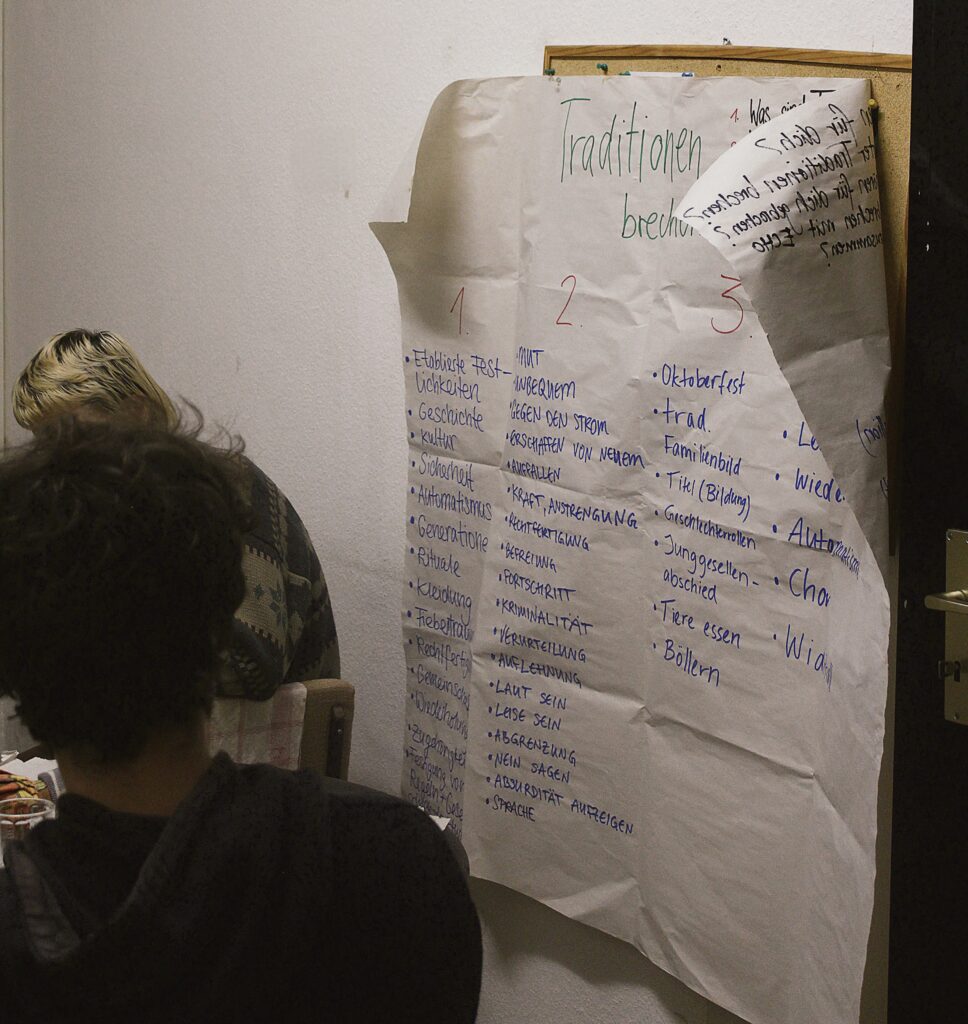 Traditionen
brechen
1. Was sind
für dich?
Traditionen brechen?
für dich gebrochen?
brechen mit ECHO
zusammen?
1.
• Etablierte Fest-
lichkeiten
• Geschichte
• Kultur
• Sicherheit
• Automatismus
• Generatione
• Rituale
• Kleidung
• Rechtfertig
• Gemeinscha
• Wiederholung
• Zugehörigkeit
• Festigung von
2.
• MUT
• UNBEQUEM
• GEGEN DEN STROM
• ERSCHAFFEN VON NEUEM
• AUFFALLEN
• KRAFT, ANSTRENGUNG
• RECHTFERTIGUNG
• BEFREIUNG
• FORTSCHRITT
• KRIMINALITÄT
• VERURTEILUNG
• AUFLEHNUNG
• LAUT SEIN
• LEISE SEIN
• ABGRENZUNG
• NEIN SAGEN
• ABSURDITÄT AUFZEIGEN
• SPRACHE
3.
• Oktoberfest
• trad.
Familienbild
• Titel (Bildung)
• Geschlechterrollen
• Junggesellen-
abschied
• Tiere essen
• Böllern
• Le
• Wiede
• Automatism
• Cho
• Wid